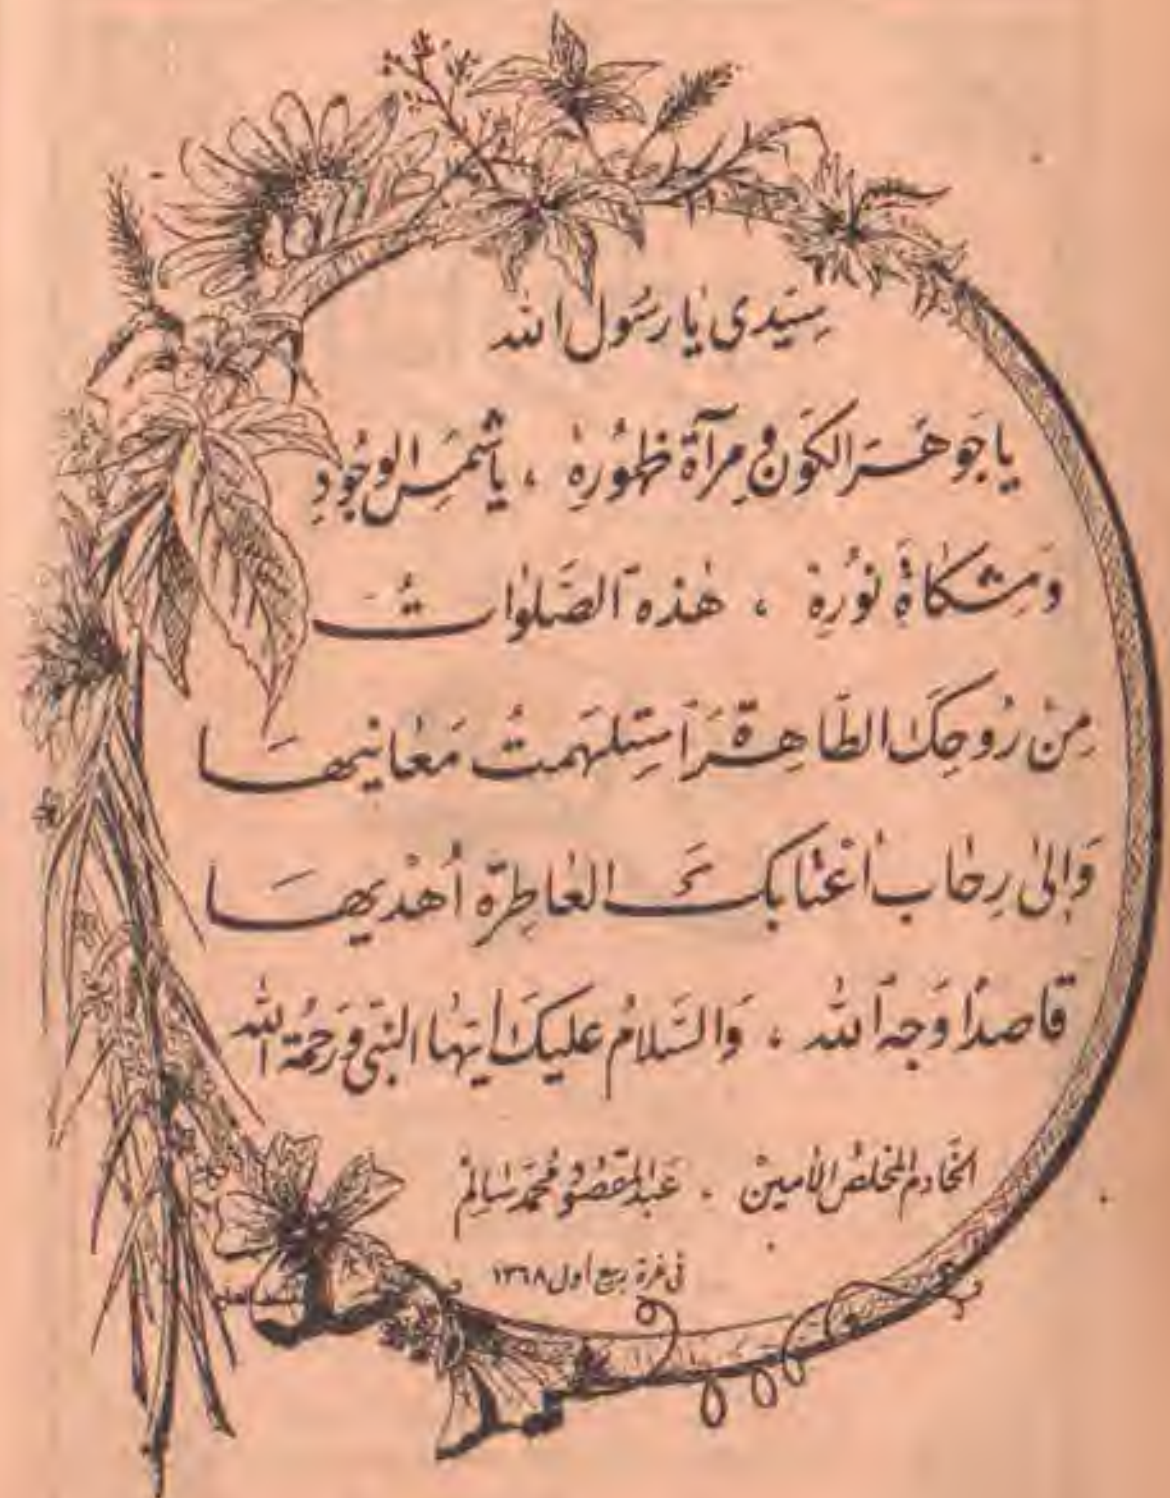 سيّدى يا رسُول الله
يا جَوهَرَ الكَون ومِرآة ظهُوره ، يا شمسَ الوجُودِ
ومِشكاة نوُره ، هٰذه الصَّلوات
مِنْ رُوحِكَ الطّاهِرَة استلهمتُ مَعَانيهَا
وَإلى رِحَاب أعْتابكَ العَاطِرَة أهْديهَا
قاصدًا وَجه الله ، وَالسَّلامُ عليكَ أيّها النبّى وَرَحمُة الله
الخادم المخلص الأمين . عَبد المقصُود محمّد سَالِم
فى غرة ربيع أول ١٣٦٨